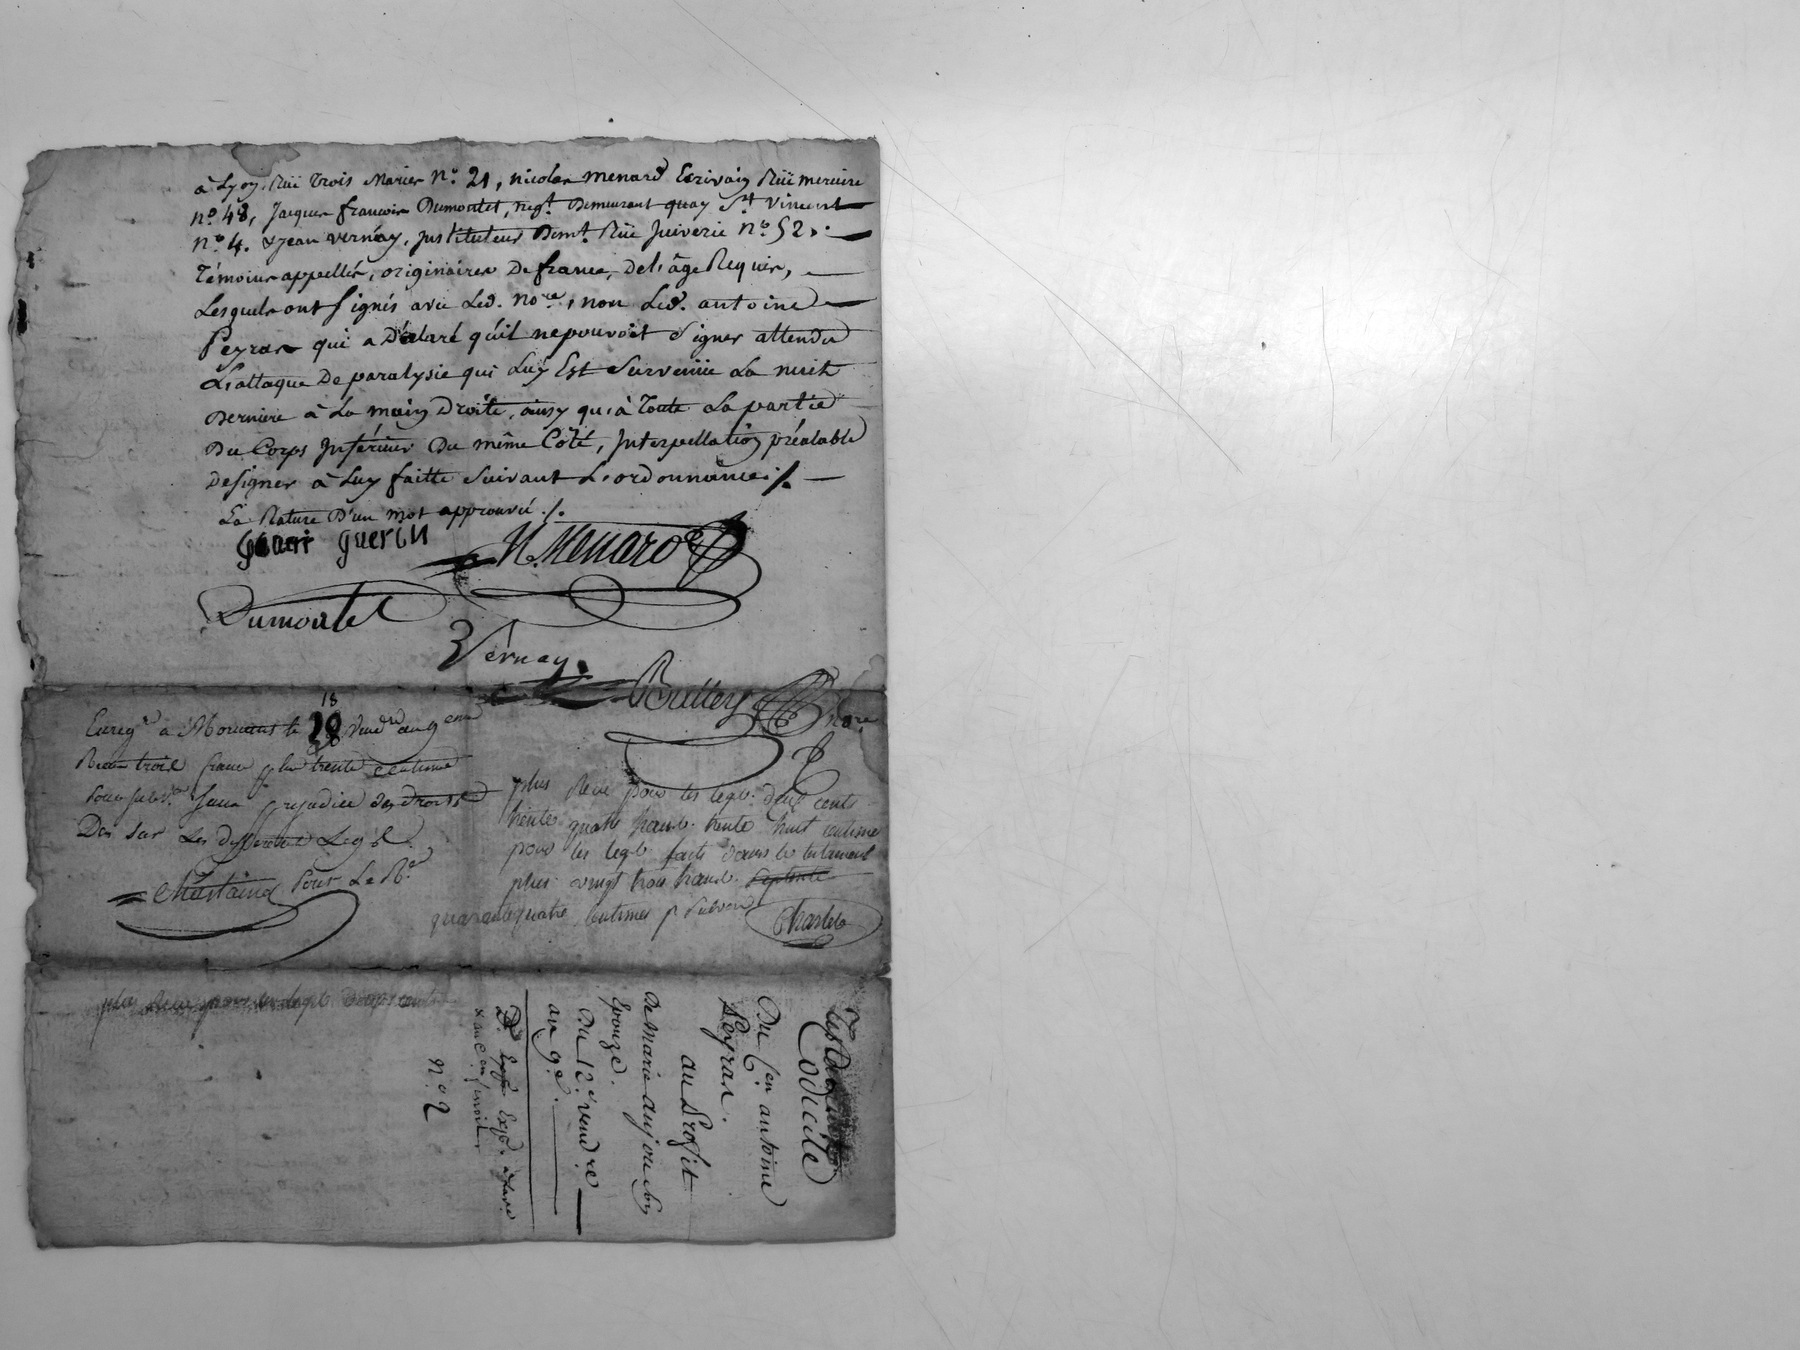 à Lyon, Rüe trois Maries n.º 21, nicolas menard Ecrivain Rüe merciere
n.º 48, Jacques françois Dumoulet, neg.t Demeurant quay S.t Vincent
n.º 4. & jean vernay, Instituteur Dem.t Rüe Juiverie n.º 52.
Témoins appellés, originaires De france, de L'âge Requis,
Lesquels ont signés avec Led. no.re, non Led. antoine
Peyras qui a Déclaré qu'il ne pouvoit signer attendu
L'attaque De paralysie qui Luy Est Survenüe La nuit
Derniere à La main Droite, ainsy qu'à Toute La partie
Du Corps Inférieur Du même Côté, Interpellation préalable
de signer à Luy faitte Suivant L'ordonnance ./.
La Rature D'un mot approuvé ./.
guerin
N. Menard
Dumoulet
Vernay
no.re
18
Enreg.é à Mornant le 18 Vend.re an 9.eme
Recu trois francs plus trente centime
pour subv.on sans prejudice des droits
Des sur Les differents Legs
Chastaing pour Le R.r
plus Recu pour les legs deux cents
trente quatre francs trente huit centimes
pour les legs faits dans le testament
plus vingt trois francs
quarante quatre centimes p.r subvon
plus Recu pour les legs
Codicile
Du C.en antoine
Peyras.
au Profit
De marie anjou son
Epouze.
Du 12.e vend.re
an 9.e
n.º 2